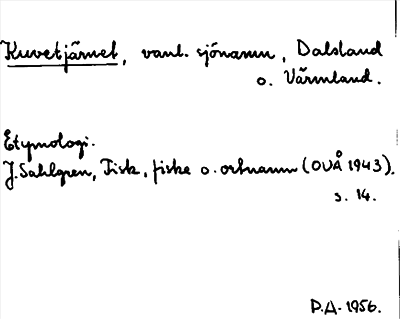 Kuvetjärnet, vanl. sjönamn, Dalsland
o. Värmland.
Etymologi.
J. Sahlgren, Fisk, fiske o. ortnamn (OUÅ 1943).
s. 14.
P.A. 1956.